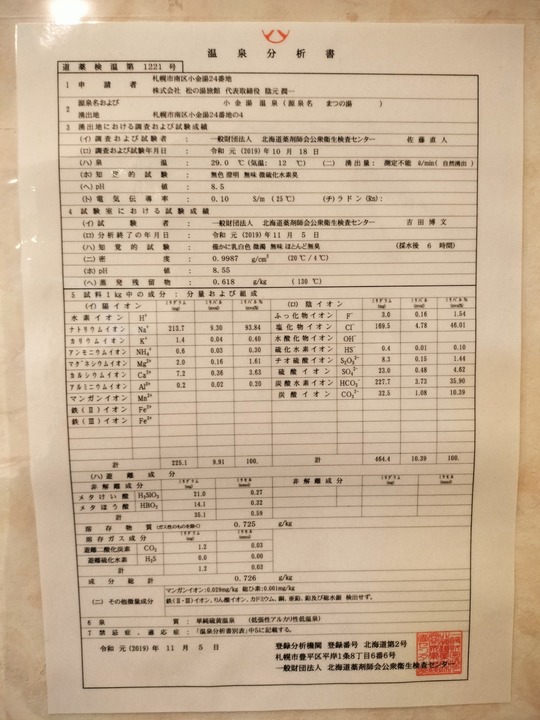 温泉分析書
道薬検温第 1221 号
1 申請者 札幌市南区小金湯24番地
株式会社 松の湯旅館 代表取締役 陰元 潤一
2 源泉名および 小金湯温泉 (源泉名 まつの湯 )
湧出地 札幌市南区小金湯24番地の4
3 湧出地における調査および試験成績
(イ) 調査および試験者 : 一般財団法人 北海道薬剤師会公衆衛生検査センター 佐藤直人
(ロ) 調査および試験年月日 : 令和 元 (2019) 年 10 月 18 日
(ハ) 泉温 : 29.0 ℃ (気温: 12 ℃) (ニ) 湧出量: 測定不能 ℓ/min( 自然湧出 )
(ホ) 知覚的試験 : 無色 澄明 無味 微硫化水素臭
(ヘ) pH値 : 8.5
(ト) 電気伝導率 : 0.10 S/m (25℃) (チ)ラドン(Rn):
4 試験室における試験成績
(イ) 試験者 : 一般財団法人 北海道薬剤師会公衆衛生検査センター 吉田博文
(ロ) 分析終了の年月日 : 令和 元 (2019) 年 11 月 5 日
(ハ) 知覚的試験 : 僅かに乳白色 微濁 無味 ほとんど無臭 (採水後 6 時間)
(ニ) 密度 : 0.9987 g/cm³ (20℃/4℃)
(ホ) pH値 : 8.55
(ヘ) 蒸発残留物 : 0.618 g/kg (130℃)
5 試料1kg中の成分:分量および組成
(イ) 陽イオン ミリグラム (mg) ミリバル (mval) ミリバル% (mval%)
水素イオン H⁺
ナトリウムイオン Na⁺ 213.7 9.30 93.84
カリウムイオン K⁺ 1.4 0.04 0.40
アンモニウムイオン NH₄⁺ 0.6 0.03 0.30
マグネシウムイオン Mg²⁺ 2.0 0.16 1.61
カルシウムイオン Ca²⁺ 7.2 0.36 3.63
アルミニウムイオン Al³⁺ 0.2 0.02 0.20
マンガンイオン Mn²⁺
鉄(Ⅱ)イオン Fe²⁺
鉄(Ⅲ)イオン Fe³⁺
計 225.1 9.91 100.
(ロ) 陰イオン ミリグラム (mg) ミリバル (mval) ミリバル% (mval%)
ふっ化物イオン F⁻ 3.0 0.16 1.54
塩化物イオン Cl⁻ 169.5 4.78 46.01
水酸化物イオン OH⁻
硫化水素イオン HS⁻ 0.4 0.01 0.10
チオ硫酸イオン S₂O₃²⁻ 8.3 0.15 1.44
硫酸イオン SO₄²⁻ 23.0 0.48 4.62
炭酸水素イオン HCO₃⁻ 227.7 3.73 35.90
炭酸イオン CO₃²⁻ 32.5 1.08 10.39
計 464.4 10.39 100.
(ハ) 遊離成分
非解離成分 ミリグラム (mg) ミリモル (mmol)
メタけい酸 H₂SiO₃ 21.0 0.27
メタほう酸 HBO₂ 14.1 0.32
計 35.1 0.59
非解離成分 ミリグラム (mg) ミリモル (mmol)
溶存物質(ガス性のものを除く) 0.725 g/kg
溶存ガス成分 ミリグラム (mg) ミリモル (mmol)
遊離二酸化炭素 CO₂ 1.2 0.03
遊離硫化水素 H₂S 0.0 0.00
計 1.2 0.03
成分総計 0.726 g/kg
(ニ) その他微量成分 マンガンイオン:0.029mg/kg 総ひ素:0.001mg/kg
鉄(Ⅱ・Ⅲ)イオン、りん酸イオン、カドミウム、銅、亜鉛、鉛及び総水銀 検出せず。
6 泉質 : 単純硫黄温泉 (低張性アルカリ性低温泉)
7 禁忌症、適応症 : 「温泉分析書別表」中5に記載する。
令和 元 (2019) 年 11 月 5 日
登録分析機関 登録番号 北海道第2号
札幌市豊平区平岸1条8丁目6番6号
一般財団法人 北海道薬剤師会公衆衛生検査センター